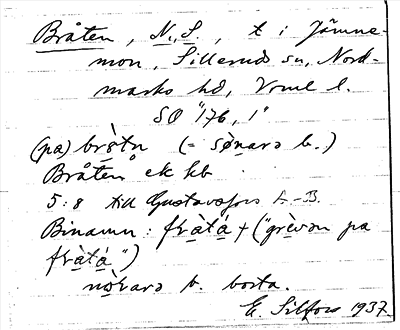 Bråten, N., S., t i Jämne-
mon, Sillerud sn, Nord-
marks hd, Vrml l.
SO "176, 1"
(pa) brò̀tn (= sǿnarə b.)
Bråten ek kb
5:8 till Gustavsfors A-B.
Binamn: fràtá + ("grèvən pa
fràtá")
nǿrarə b. borta.
E. Silfors 1937